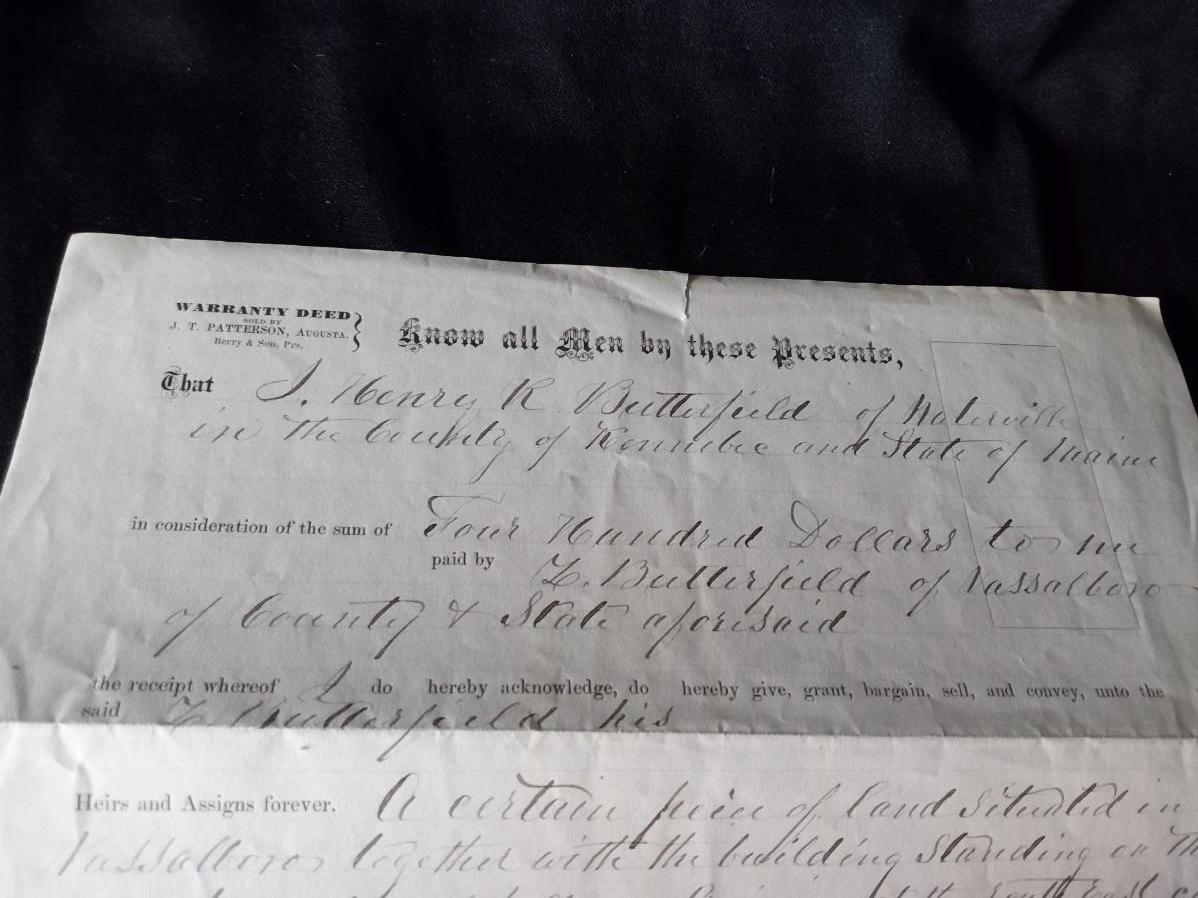 WARRANTY DEED
SOLD BY
J. T. PATTERSON, AUGUSTA.
Berry & Son, Prs.
Know all Men by these Presents,
That I. Henry K Butterfield of Waterville
in the County of Kennebec and State of Maine
in consideration of the sum of Four Hundred Dollars to me
paid by Z. Butterfield of Vassalboro
of County & State aforesaid
the receipt whereof I do hereby acknowledge, do hereby give, grant, bargain, sell, and convey, unto the
said Z Butterfield his
Heirs and Assigns forever. A certain piece of land situated in
Vassalboro together with the building standing on
South East